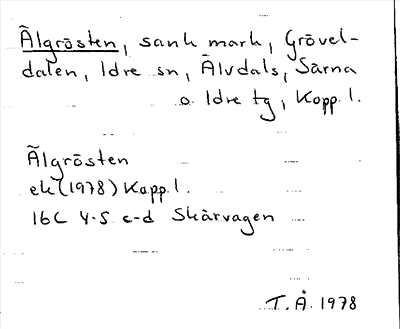 Älgrösten, sank mark, Grövel-
dalen, Idre sn, Älvdals, Särna
o. Idre tg, Kopp. l.
Älgrösten
ek (1978) Kopp. l.
16C 4-5 c-d Skärvagen
T. Å. 1978